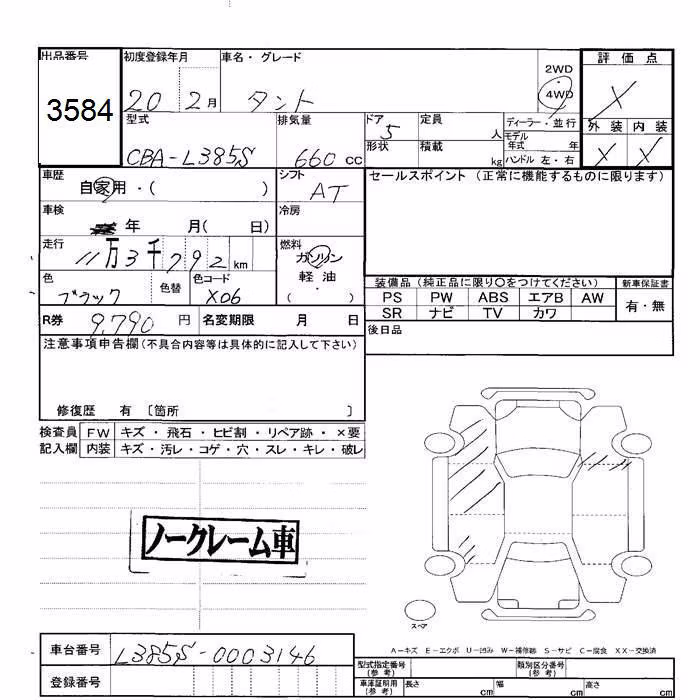 出品番号
3584
初度登録年月
20 2月
車名・グレード
タント
2WD
4WD
評価点
X
外装 内装
X X
型式
CBA-L385S
排気量
660 cc
ドア
5
定員
人
形状
積載
kg
ディーラー・並行
モデル年式 年
ハンドル 左・右
車歴
自家用・( )
シフト
AT
セールスポイント (正常に機能するものに限ります)
車検
年 月( 日)
冷房
走行
11万3千792 km
燃料
ガソリン
軽・油
( )
色
ブラック
色替
色コード
X06
装備品 (純正品に限り○をつけてください)
新車保証書
PS PW ABS エアB AW
SR ナビ TV カワ
有・無
R券 9,790 円
名変期限 月 日
後日品
注意事項申告欄(不具合内容等は具体的に記入して下さい)
修復歴 有 〔箇所 〕
検査員
記入欄
FW キズ・飛石・ヒビ割・リペア跡・×要
内装 キズ・汚レ・コゲ・穴・スレ・キレ・破レ
ノークレーム車
スペア
A-キズ E-エクボ U-凹み W-補修跡 S-サビ C-腐食 XX-交換済
車台番号
L385S-0003146
登録番号
型式指定番号
(参考)
類別区分番号
(参考)
車庫証明用
(参考)
長さ cm 幅 cm 高さ cm